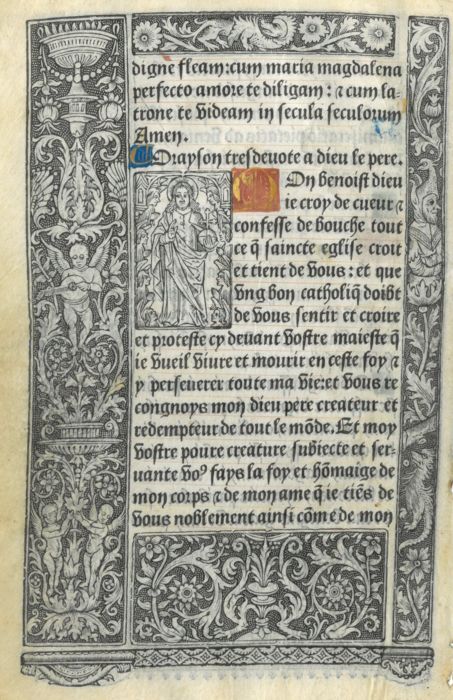 digne fleam: cum maria magdalena
perfecto amore te diligam: ⁊ cum la-
trone te videam in secula seculorum
Amen.
Orayson tresdevote a dieu le pere.
MOn benoist dieu
ie croy de cueur ⁊
confesse de bouche tout
ce q̃ saincte eglise croit
et tient de vous: et que
vng bon catholiq̃ doibt
de vous sentir et croire
et proteste cy devant vostre maieste q̃
ie vueil vivre et mourir en ceste foy ⁊
y perseverer toute ma vie: et vous re
congnoys mon dieu pere createur et
redempteur de tout le mõde. Et moy
vostre poure creature subiecte et ser-
vante voꝰ fays la foy et hõmaige de
mon corps ⁊ de mon ame q̃ ie tiẽs de
vous noblement ainsi cõme de mon